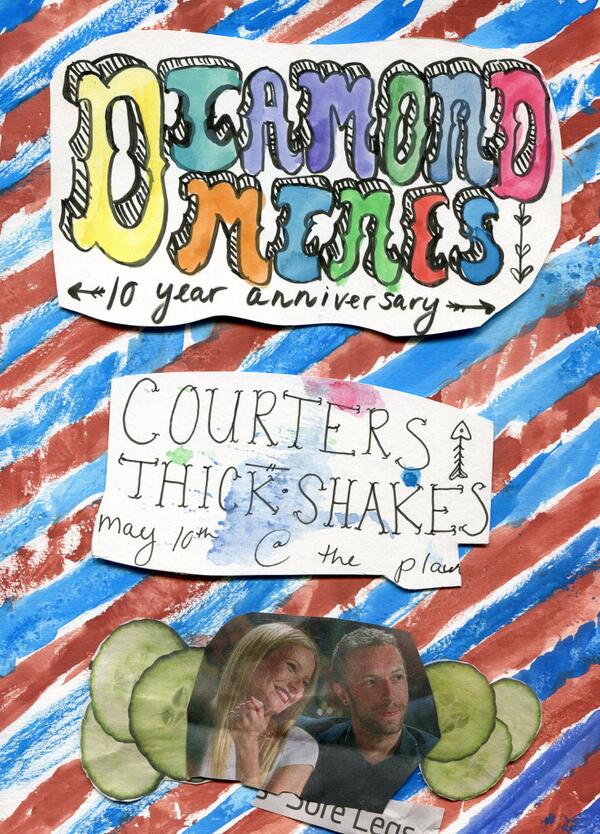 DIAMOND
MINES
10 year anniversary
COURTERS
THICK·SHAKES
may 10th @ the plaza
Sore Legs